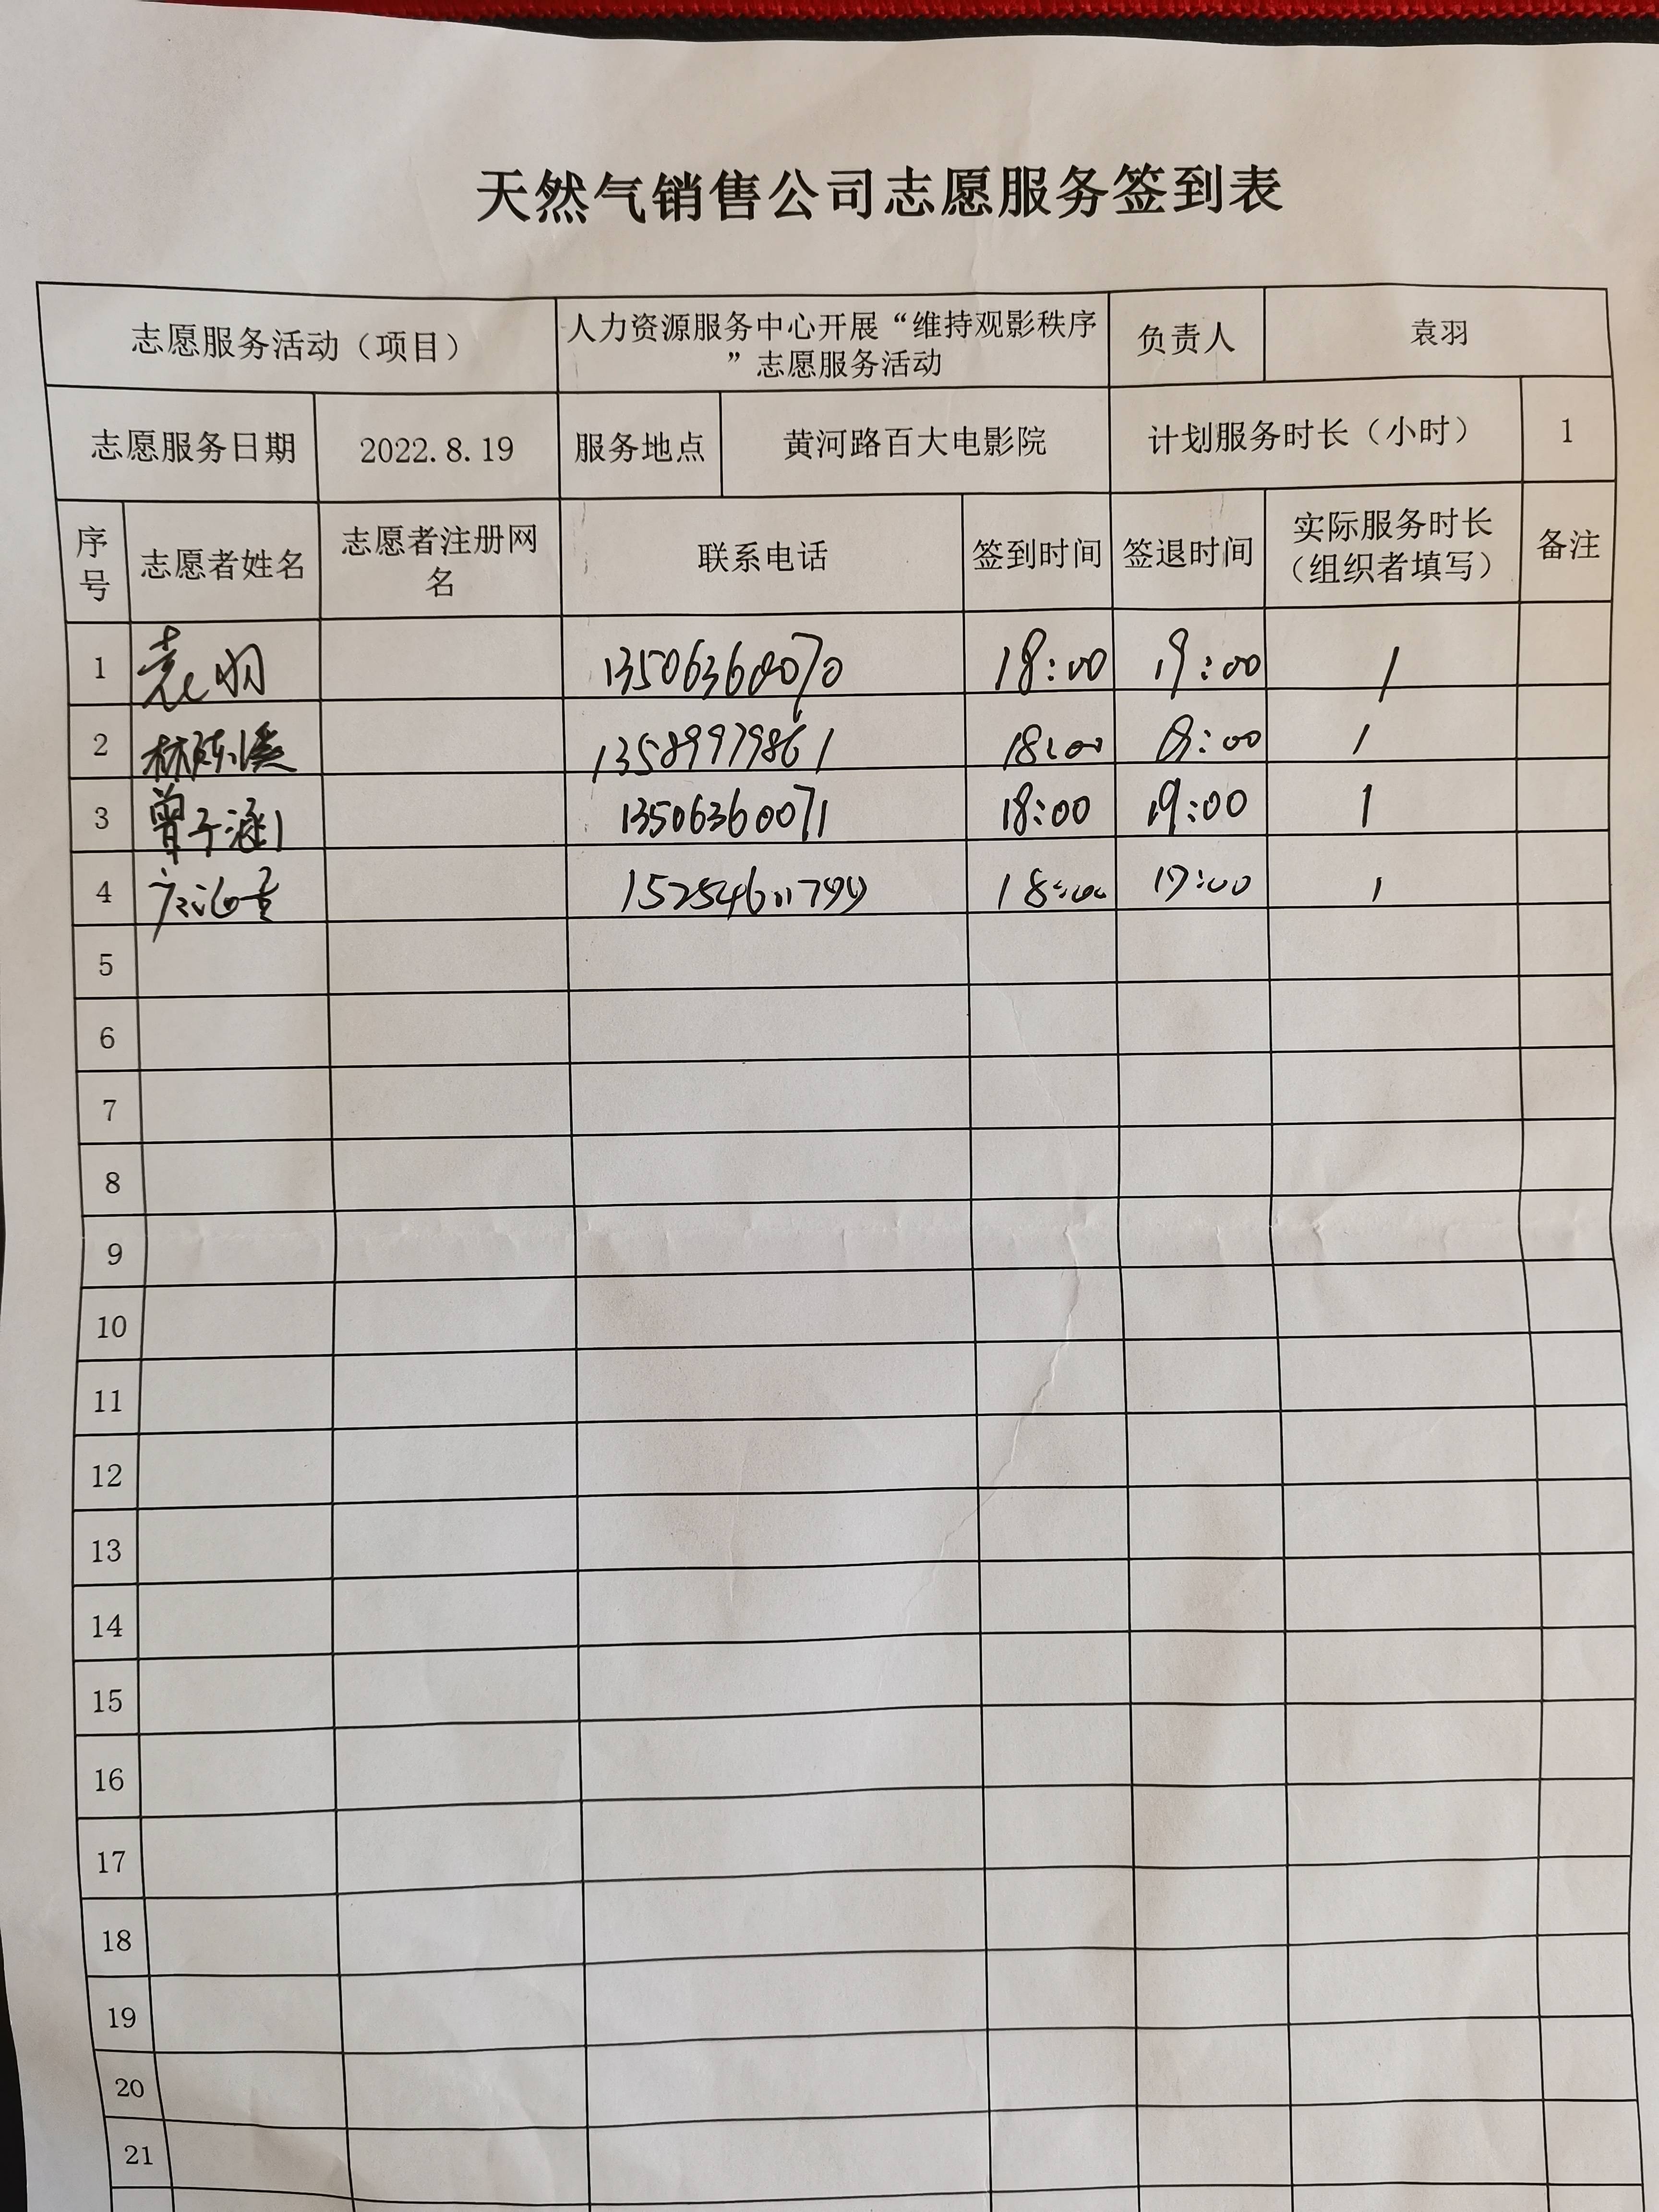 天然气销售公司志愿服务签到表
志愿服务活动（项目） 人力资源服务中心开展“维持观影秩序”志愿服务活动 负责人 袁羽
志愿服务日期 2022.8.19 服务地点 黄河路百大电影院 计划服务时长（小时） 1
序号 志愿者姓名 志愿者注册网名 联系电话 签到时间 签退时间 实际服务时长（组织者填写） 备注
1 袁羽 13506360070 18:00 19:00 1
2 13589979861 18:00 19:00 1
3 曾子涵 13506360071 18:00 19:00 1
4 18:00 19:00 1
5
6
7
8
9
10
11
12
13
14
15
16
17
18
19
20
21